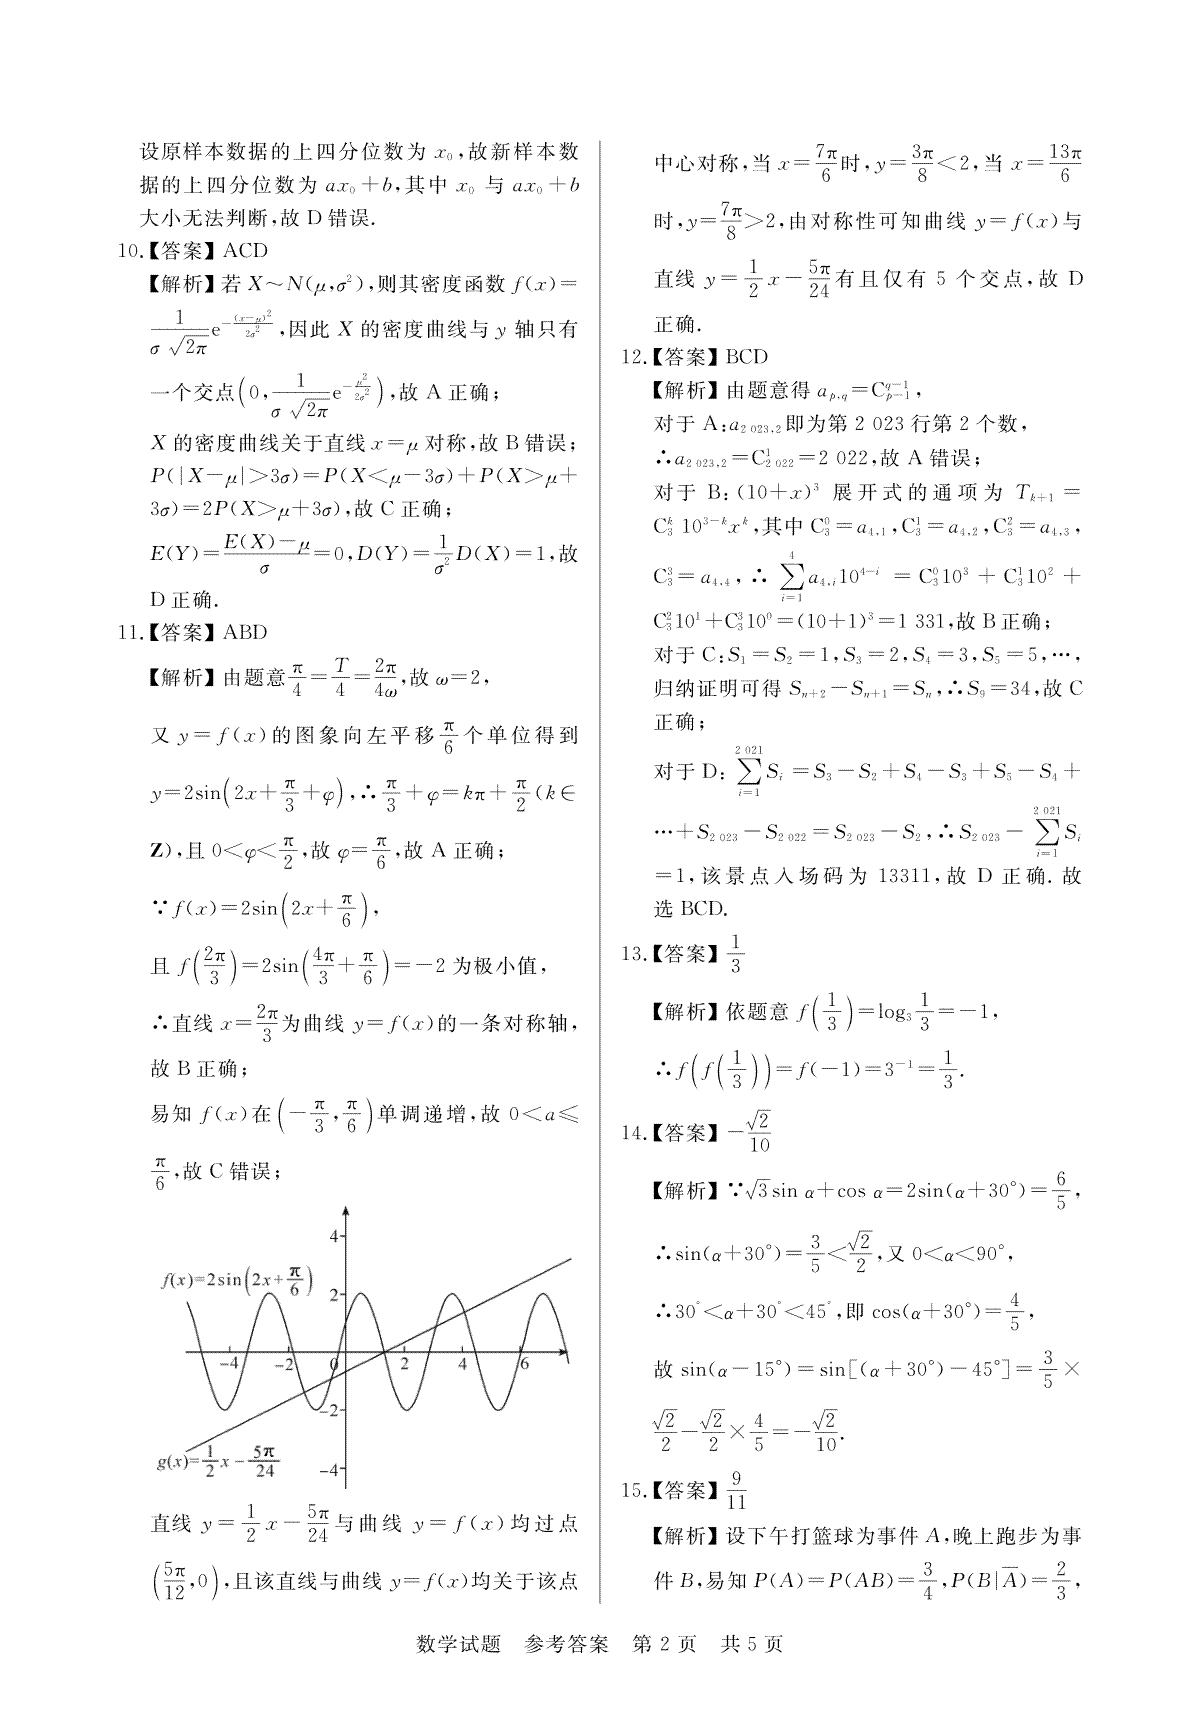 设原样本数据的上四分位数为 x₀,故新样本数
据的上四分位数为 ax₀+b,其中 x₀ 与 ax₀+b
大小无法判断,故 D 错误.
10.【答案】ACD
【解析】若 X~N(μ,σ²),则其密度函数 f(x)=
1/(σ√(2π)) e^(-(x-μ)²/(2σ²)),因此 X 的密度曲线与 y 轴只有
一个交点(0, 1/(σ√(2π)) e^(-μ²/(2σ²))),故 A 正确;
X 的密度曲线关于直线 x=μ 对称,故 B 错误;
P(|X-μ|>3σ)=P(X<μ-3σ)+P(X>μ+
3σ)=2P(X>μ+3σ),故 C 正确;
E(Y)=(E(X)-μ)/σ=0,D(Y)=1/σ² D(X)=1,故
D 正确.
11.【答案】ABD
【解析】由题意 π/4=T/4=2π/4ω,故 ω=2,
又 y=f(x)的图象向左平移 π/6 个单位得到
y=2sin(2x+π/3+φ),∴π/3+φ=kπ+π/2(k∈
Z),且 0<φ<π/2,故 φ=π/6,故 A 正确;
∵f(x)=2sin(2x+π/6),
且 f(2π/3)=2sin(4π/3+π/6)=-2 为极小值,
∴直线 x=2π/3 为曲线 y=f(x)的一条对称轴,
故 B 正确;
易知 f(x)在(-π/3,π/6)单调递增,故 0<a≤
π/6,故 C 错误;
4
f(x)=2sin(2x+π/6)
2
-4 -2 0 2 4 6
-2
g(x)=1/2 x-5π/24
-4
直线 y=1/2 x-5π/24 与曲线 y=f(x)均过点
(5π/12,0),且该直线与曲线 y=f(x)均关于该点
中心对称,当 x=7π/6 时,y=3π/8<2,当 x=13π/6
时,y=7π/8>2,由对称性可知曲线 y=f(x)与
直线 y=1/2 x-5π/24 有且仅有 5 个交点,故 D
正确.
12.【答案】BCD
【解析】由题意得 a_{p,q}=C_{p-1}^{q-1},
对于 A:a_{2 023,2}即为第 2 023 行第 2 个数,
∴a_{2 023,2}=C_{2 022}^{1}=2 022,故 A 错误;
对于 B:(10+x)³ 展开式的通项为 T_{k+1}=
C_3^k 10^{3-k}x^k,其中 C_3^0=a_{4,1},C_3^1=a_{4,2},C_3^2=a_{4,3},
C_3^3=a_{4,4},∴∑_{i=1}^{4}a_{4,i}10^{4-i}=C_3^0 10³+C_3^1 10²+
C_3^2 10¹+C_3^3 10⁰=(10+1)³=1 331,故 B 正确;
对于 C:S₁=S₂=1,S₃=2,S₄=3,S₅=5,…,
归纳证明可得 S_{n+2}-S_{n+1}=S_n,∴S₉=34,故 C
正确;
对于 D:∑_{i=1}^{2 021}S_i=S₃-S₂+S₄-S₃+S₅-S₄+
…+S_{2 023}-S_{2 022}=S_{2 023}-S₂,∴S_{2 023}-∑_{i=1}^{2 021}S_i
=1,该景点入场码为 13311,故 D 正确.故
选 BCD.
13.【答案】1/3
【解析】依题意 f(1/3)=log₃ 1/3=-1,
∴f(f(1/3))=f(-1)=3⁻¹=1/3.
14.【答案】-√2/10
【解析】∵√3sin α+cos α=2sin(α+30°)=6/5,
∴sin(α+30°)=3/5<√2/2,又 0<α<90°,
∴30°<α+30°<45°,即 cos(α+30°)=4/5,
故 sin(α-15°)=sin[(α+30°)-45°]=3/5×
√2/2-√2/2×4/5=-√2/10.
15.【答案】9/11
【解析】设下午打篮球为事件 A,晚上跑步为事
件 B,易知 P(A)=P(AB)=3/4,P(B|A̅)=2/3,
数学试题 参考答案 第 2 页 共 5 页